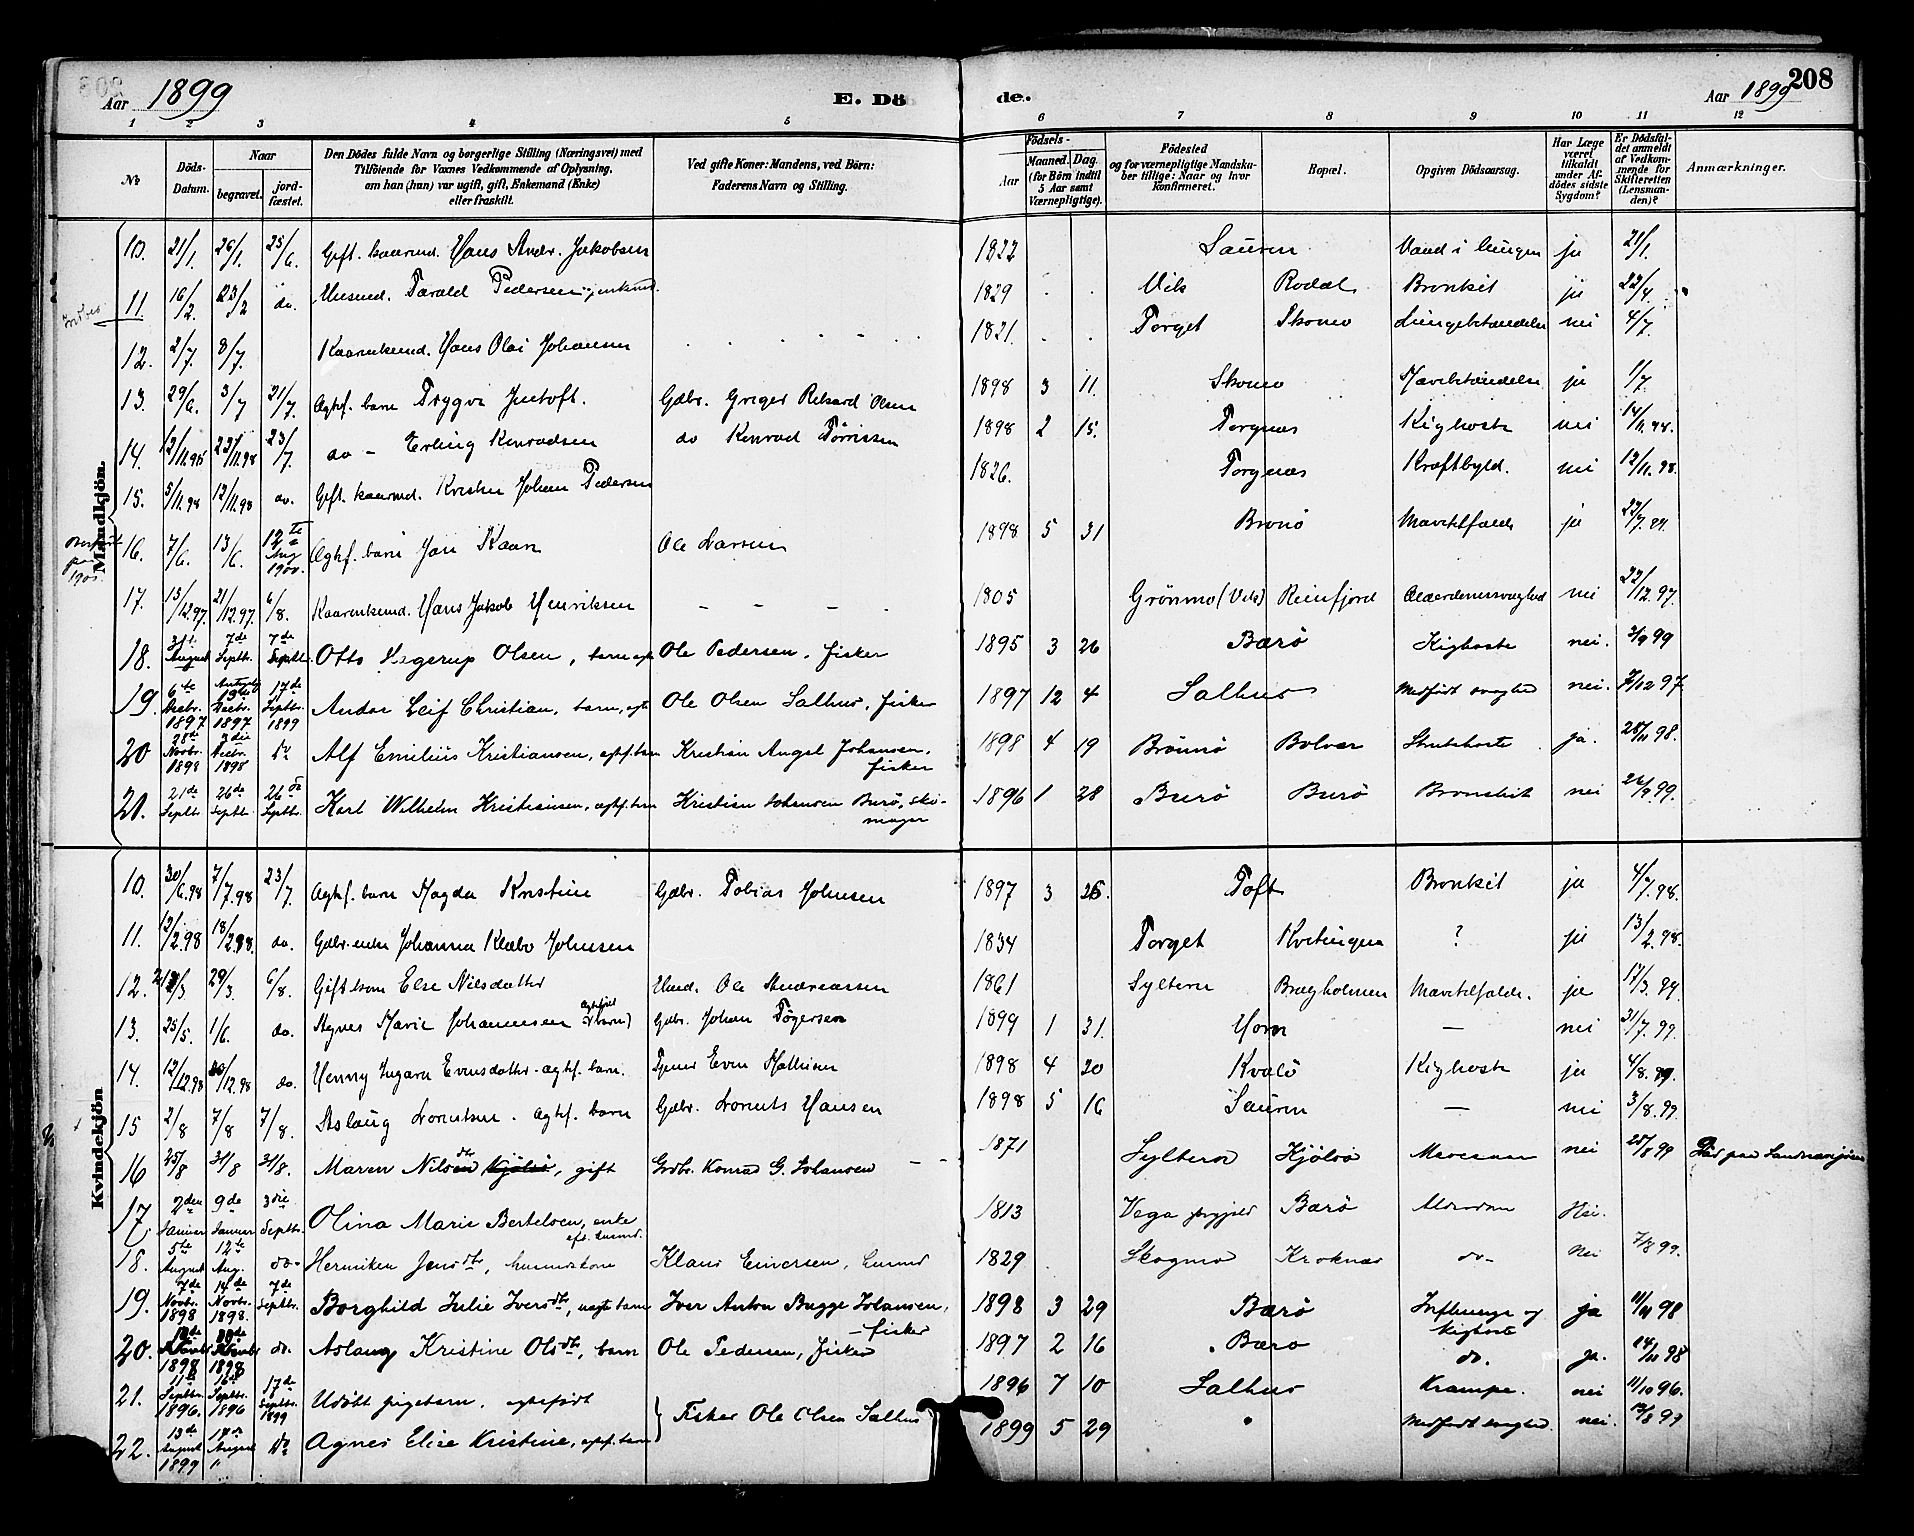 Aar 1899
E. Dö
de.
Aar 1899
208
1 2 3 4 5 6 7 8 9 10 11 12
No
Döds-Datum.
Naar
begravet.
jord-fæstet.
Den Dödes fulde Navn og borgerlige Stilling (Næringsvei) med
Tilföiende for Voxnes Vedkommende af Oplysning,
om han (hun) var ugift, gift, Enkemand (Enke)
eller fraskilt.
Ved gifte Koner: Mandens, ved Börn:
Faderens Navn og Stilling.
Födsels-
Aar
Maaned. Dag.
(for Börn indtil
5 Aar samt
Værnepligtige).
Födested
og for værnepligtige Mandska-
ber tillige: Naar og hvor
konfirmeret.
Bopæl.
Opgiven Dödsaarsag.
Har Læge
været
tilkaldt
under Af-
dödes sidste
Sygdom?
Er Dödsfal-
det anmeldt
af Vedkom-
mende for
Skifteretten
(Lensman-
den)?
Anmærkninger.
Mandkjön.
10. 21/1. 26/1. 25/6 Gift. kaarmd. Hans Andr. Jakobsen 1822 Sauren Vand i lungen ja 21/1.
11. 16/2. 23/2 do. Husmd. Tarald Pedersen, enkemd. 1829 Vik Rodal Bronkit ja 22/4.
12. 2/7. 8/7. Kaarenkemd. Hans Olai Johansen 1821. Torget Skomo Lungebetændelse nei 4/7.
13. 29/6. 3/7 21/7. Ægtef. barn Trygve Jentoft. Gdbr. Greger Rikard Olsen 1898 3 11. Skomo Mavebetændelse ja 1/7.
14. 12/11.98 23/11.98 23/7. do - Erling Konradsen do Konrad Tørrissen 1898 2 15. Torgnes Kighoste nei 14/11.98.
15. 5/11.98 12/11.98 do. Gift. kaarmd. Kristen Johan Pedersen 1826. Torgnæs Kræftbyld. nei 12/11.98.
16. 7/6. 13/6. 12te Aug 1900. Ægtef. barn Jon Kaare Ole Larsen 1898 5 31 Brønø Mavetilfælde ja 23/7.99.
17. 15/12.97. 21/12.97. 6/8. Kaarenkemd. Hans Jakob Henriksen - - - 1805 Grönmo (Vik) Reinfjord Alderdomssvaghed nei 22/12.97.
18. 31t August 7de Septbr. 7de Septbr. Otto Hagerup Olsen, barn egte Ole Pedersen, fisker 1895 3 26 Bærö Kighoste nei. 2/9 99
19. 6te Decbr. 1897 13de Decbr. 1897 17de Septbr. 1899 Andor Leif Christian, barn, egte Ole Olsen Salhus, fisker 1897 12 4 Salhus Medfödt svaghed nei. 7/12 97
20 28de Novbr. 1898 3die Decbr. 1898 do Alf Emilius Kristiansen, egtf. barn Kristian Angel Johansen, fisker 1898 4 19 Brönnö Bolvær Strubehoste ja. 28/11 98.
21. 21de Septbr 26de Septbr. 26de Septbr. Karl Wilhelm Kristiansen, egtf. barn Kristian Johansen Burö, sko-mager 1896 1 28 Burö Burö Bronchit nei 26/9 99.
Kvindekjön
10. 30/6.98 7/7.98 23/7. Ægtef. barn Magda Kristine Gdbr. Tobias Johnsen 1897 3 25. Toft Bronkit ja 4/7.98.
11. 12/2.98 18/2.98. do. Gdbr. enke Johanna Klæbo Johnsen 1834 Torget Kvetingen ? ja 13/2.98.
12. 3. 29/3. 6/8. Gift kone Else Nilsdatter Husmd. Ole Andreassen 1861 Syltern Brægholmen Mavetilfælde. ja 17/3.99.
13. 25/5. 1/6. do. Agnes Marie Johannesen (ægtefød barn) Gdbr. Johan Tøgersen 1899 1 31. Horn - nei 31/7.99.
14. 12/12.98 20/12.98 do. Henny Ingara Evensdatter - ægtef. barn. Tjener Even Mathisen 1898 4 20 Kvalö Kighoste ja 4/8.99.
15 2/8 7/8 7/8. Aslaug Lorentsen. ægtef. barn Gdbr. Lorents Hansen 1898 5 16 Sauren - nei 3/8.99.
16 25/8 31/8 31/8. Maren Nilsdtr, gift Grdbr. Konrad G. Johansen - - 1871 Syltern Kjölsö Mavesaar nei 28/8 99 Död paa Sandnæssjøen
17 2den Januar 9de Januar 3die Septbr. Olina Marie Bertelsen, enke eft. husmd. 1813 Vega prgjeld Bærö Alderdom Nei.
18. 5te August 12te Aug. do. Henriken Jensdtr, husmdskone Klaus Einersen, husmd 1829 Skogmo Kroknæs do- Nei 7/8 99.
19. 7de Novbr. 1898 14de Novbr. 1898. 7de Septbr. Borghild Julie Iversdtr, uegte barn Iver Anton Bugge Johansen, fisker 1898 3 29 Bærö Influenza og kighoste ja 11/11 98
20. 13de 1898 20de 1898 do. Aslaug Kristine Olsdtr, barn Ole Pedersen, fisker 1897 2 16 Bærö do. ja. 14/11 98
21. 11te Septbr. 1896. 16de Septbr. 1896 17de Septbr. 1899 Udöbt pigebarn, egtefödt Fisker Ole Olsen Salhus 1896 7 10 Salhus Krampe. nei 11/10 96.
22. 13de August 1899 17de August " do Agnes Elise Kristine, egtf. barn 1899 5 29 " Medfödt svaghed. nei. 13/8 99